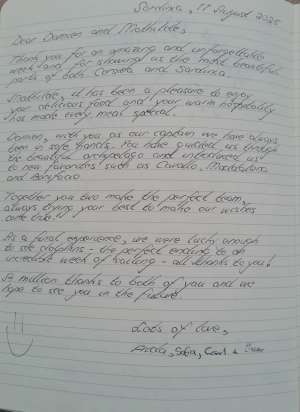 Sardinia, 11 August 2025
Dear Damien and Mathilde,
Thank you for an amazing and unforgettable
week and for showing us the most beautiful
parts of both Corsica and Sardinia.
Mathilde, it has been a pleasure to enjoy
your delicious food and your warm hospitality
has made every meal special.
Damien, with you as our captain we have always
been in safe hands. You have guided us through
the beautiful archipelago and introduced us
to new favorites such as Cavallo, Maddalena
and Bonifacio
Together you two make the perfect team,
always doing your best to make our wishes
come true.
As a final experience, we were lucky enough
to see dolphins - the perfect ending to an
incredible week of sailing - all thanks to you!
A million thanks to both of you and we
hope to see you in the future.
Lots of love,
Sofia, Carl &